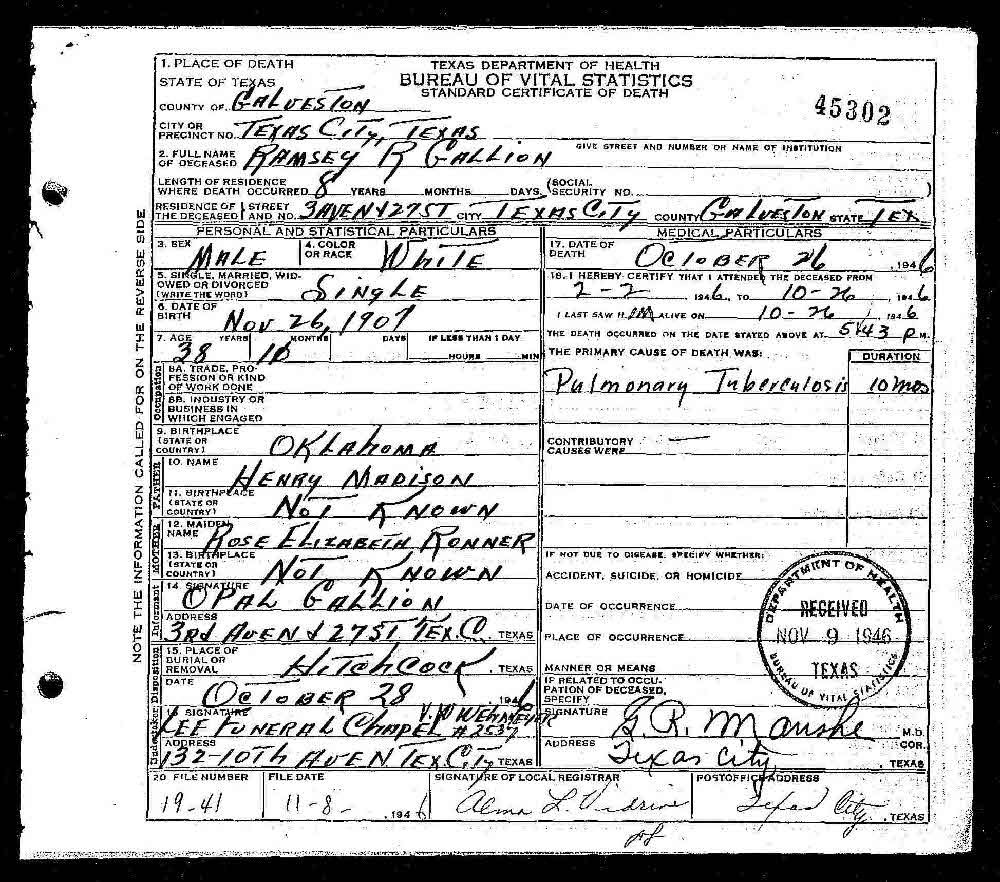 1. PLACE OF DEATH
STATE OF TEXAS
COUNTY OF GALVESTON
CITY OR PRECINCT NO. TEXAS CITY, TEXAS
TEXAS DEPARTMENT OF HEALTH
BUREAU OF VITAL STATISTICS
STANDARD CERTIFICATE OF DEATH
45302
2. FULL NAME OF DECEASED RAMSEY R GALLION
GIVE STREET AND NUMBER OR NAME OF INSTITUTION
LENGTH OF RESIDENCE WHERE DEATH OCCURRED 8 YEARS MONTHS DAYS. (SOCIAL SECURITY NO. )
RESIDENCE OF THE DECEASED STREET AND NO. 3 AVEN & 27 ST CITY TEXAS CITY COUNTY GALVESTON STATE TEX
PERSONAL AND STATISTICAL PARTICULARS
3. SEX MALE
4. COLOR OR RACE WHITE
5. SINGLE, MARRIED, WIDOWED OR DIVORCED (WRITE THE WORD) SINGLE
6. DATE OF BIRTH NOV 26, 1907
7. AGE 38 YEARS 10 MONTHS DAYS IF LESS THAN 1 DAY HOURS MIN
Occupation
8A. TRADE, PROFESSION OR KIND OF WORK DONE
8B. INDUSTRY OR BUSINESS IN WHICH ENGAGED
9. BIRTHPLACE (STATE OR COUNTRY) OKLAHOMA
FATHER
10. NAME HENRY MADISON
11. BIRTHPLACE (STATE OR COUNTRY) NOT KNOWN
MOTHER
12. MAIDEN NAME ROSE ELIZABETH RONNER
13. BIRTHPLACE (STATE OR COUNTRY) NOT KNOWN
Informant
14. SIGNATURE OPAL GALLION
ADDRESS 3Rd AVEN & 27 ST TEX. C. TEXAS
Disposition
15. PLACE OF BURIAL OR REMOVAL HITCHCOCK, TEXAS
DATE OCTOBER 28, 1946
Undertaker
16. SIGNATURE LEE FUNERAL CHAPEL V. W WEHMEYER # 2537
ADDRESS 132-10TH AVE N TEX CITY TEXAS
MEDICAL PARTICULARS
17. DATE OF DEATH OCTOBER 26, 1946
18. I HEREBY CERTIFY THAT I ATTENDED THE DECEASED FROM
2-2 1946, TO 10-26 1946
I LAST SAW HIM ALIVE ON 10-26 1946
THE DEATH OCCURRED ON THE DATE STATED ABOVE AT 5:43 P M.
THE PRIMARY CAUSE OF DEATH WAS: DURATION
Pulmonary Tuberculosis 10 mos
CONTRIBUTORY CAUSES WERE —
IF NOT DUE TO DISEASE, SPECIFY WHETHER:
ACCIDENT, SUICIDE, OR HOMICIDE
DATE OF OCCURRENCE
PLACE OF OCCURRENCE
MANNER OR MEANS
IF RELATED TO OCCUPATION OF DECEASED, SPECIFY
DEPARTMENT OF HEALTH
RECEIVED
NOV 9 1946
TEXAS
BUREAU OF VITAL STATISTICS
SIGNATURE G. R. Manske M.D. COR.
ADDRESS Texas City, TEXAS
20 FILE NUMBER FILE DATE SIGNATURE OF LOCAL REGISTRAR POSTOFFICE ADDRESS
19-41 11-8- , 1946 Alma L. Vidrine Texas City, TEXAS
NOTE THE INFORMATION CALLED FOR ON THE REVERSE SIDE